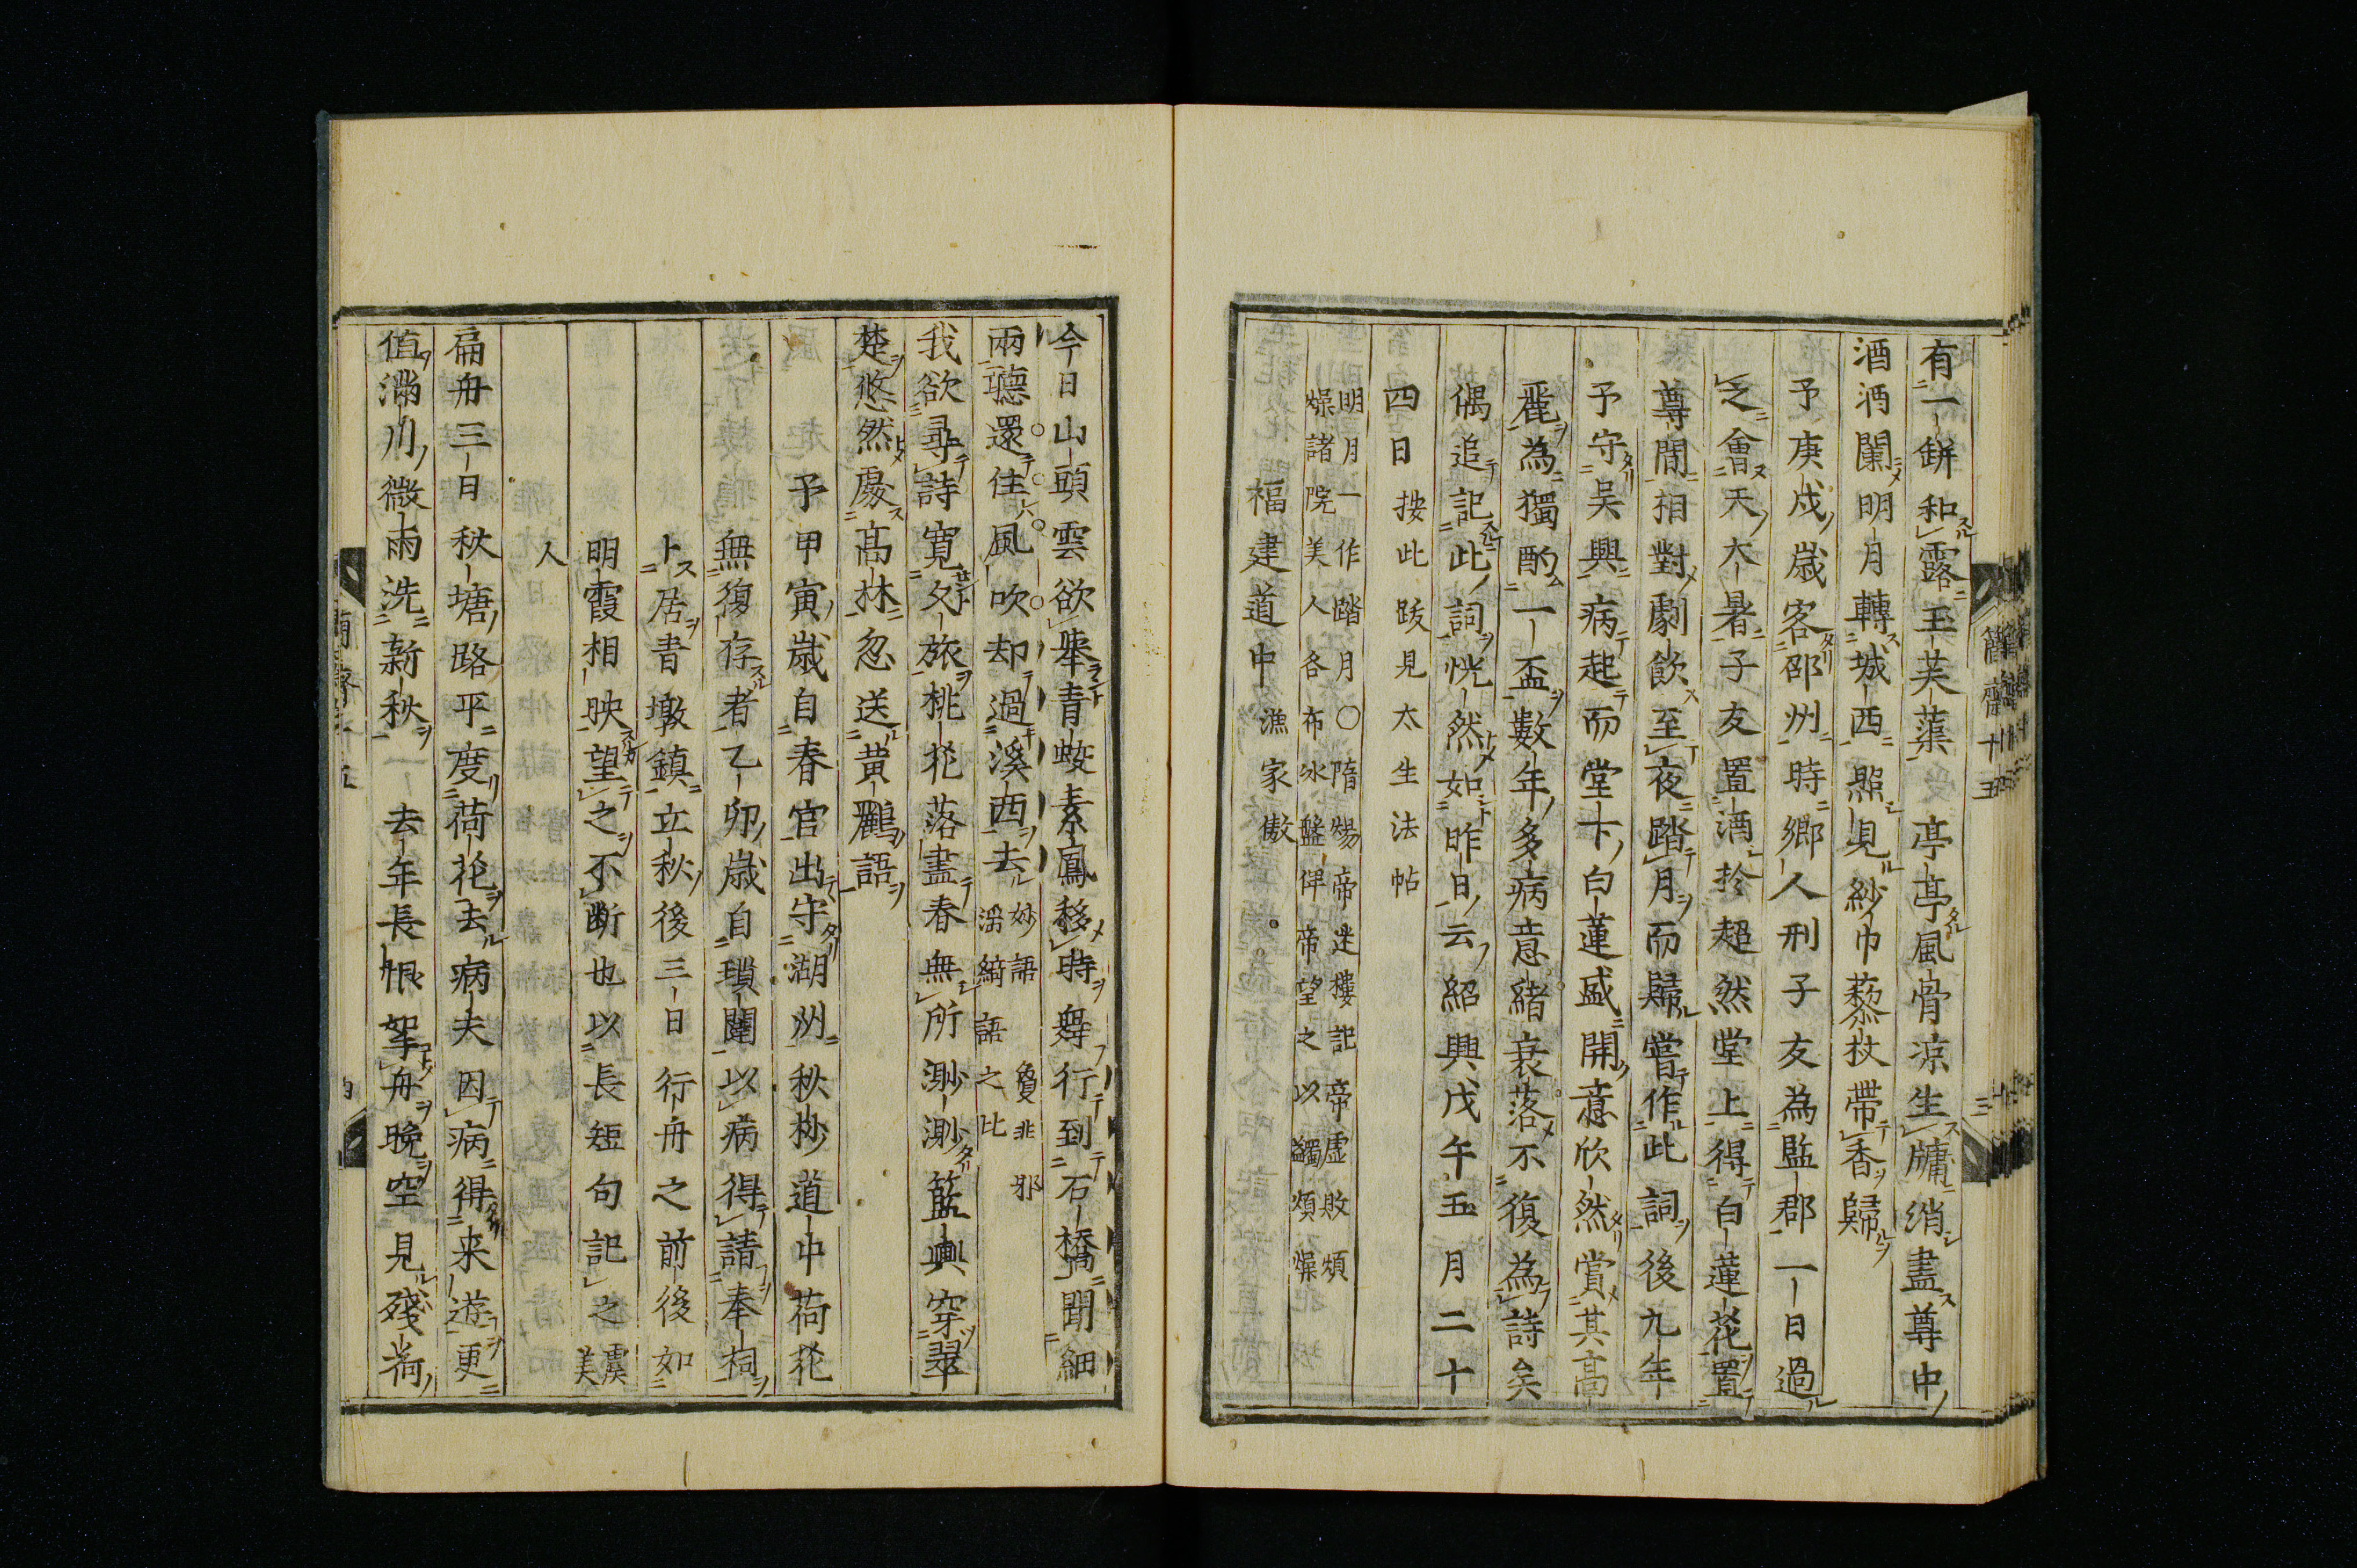 有一餅和露玉芙蕖亭亭風骨涼生牗綃盡尊中
酒酒闌明月轉城西照見紗巾藜杖帶香歸
予庚戍歲客邵州時鄉人刑子友為監郡一日過
之會天大暑子友置酒於超然堂上得白蓮花置
尊間相對劇飲至夜踏月而歸嘗作此詞後九年
予守吳興病起而堂下白蓮盛開意欣然賞其高
麗為獨酌一盃數年多病意緒衰落不復為詩矣
偶追記此詞恍然如昨日云紹興戊午五月二十
四日 按此跋見太生法帖
明月一作踏月○隋煬帝迷樓記帝虛敗煩
燥諸院美人各市冰盤俾帝望之以蠲煩燥
福建道中 漁家傲
簡齋十五
今日山頭雲欲舉青蛟素鳳移時舞行到石橋聞細
雨聽還佳風吹却過溪西去 妙語 夐非邪
淫綺語之比
我欲尋詩寬夕旅桃花落盡春無所渺渺籃輿穿翠
楚悠然處高林忽送黃鸝語
予甲寅歲自春官出守湖州秋杪道中荷花
無復存者乙卯歲自瑣闥以病得請奉祠
卜居青墩鎮立秋後三日行舟之前後如
明霞相映望之不斷也以長短句記之 虞美
人
扁舟三日秋塘路平度荷花去病夫因病得来遊更
值滿川微雨洗新秋 去年長恨挐舟晚空見殘荷